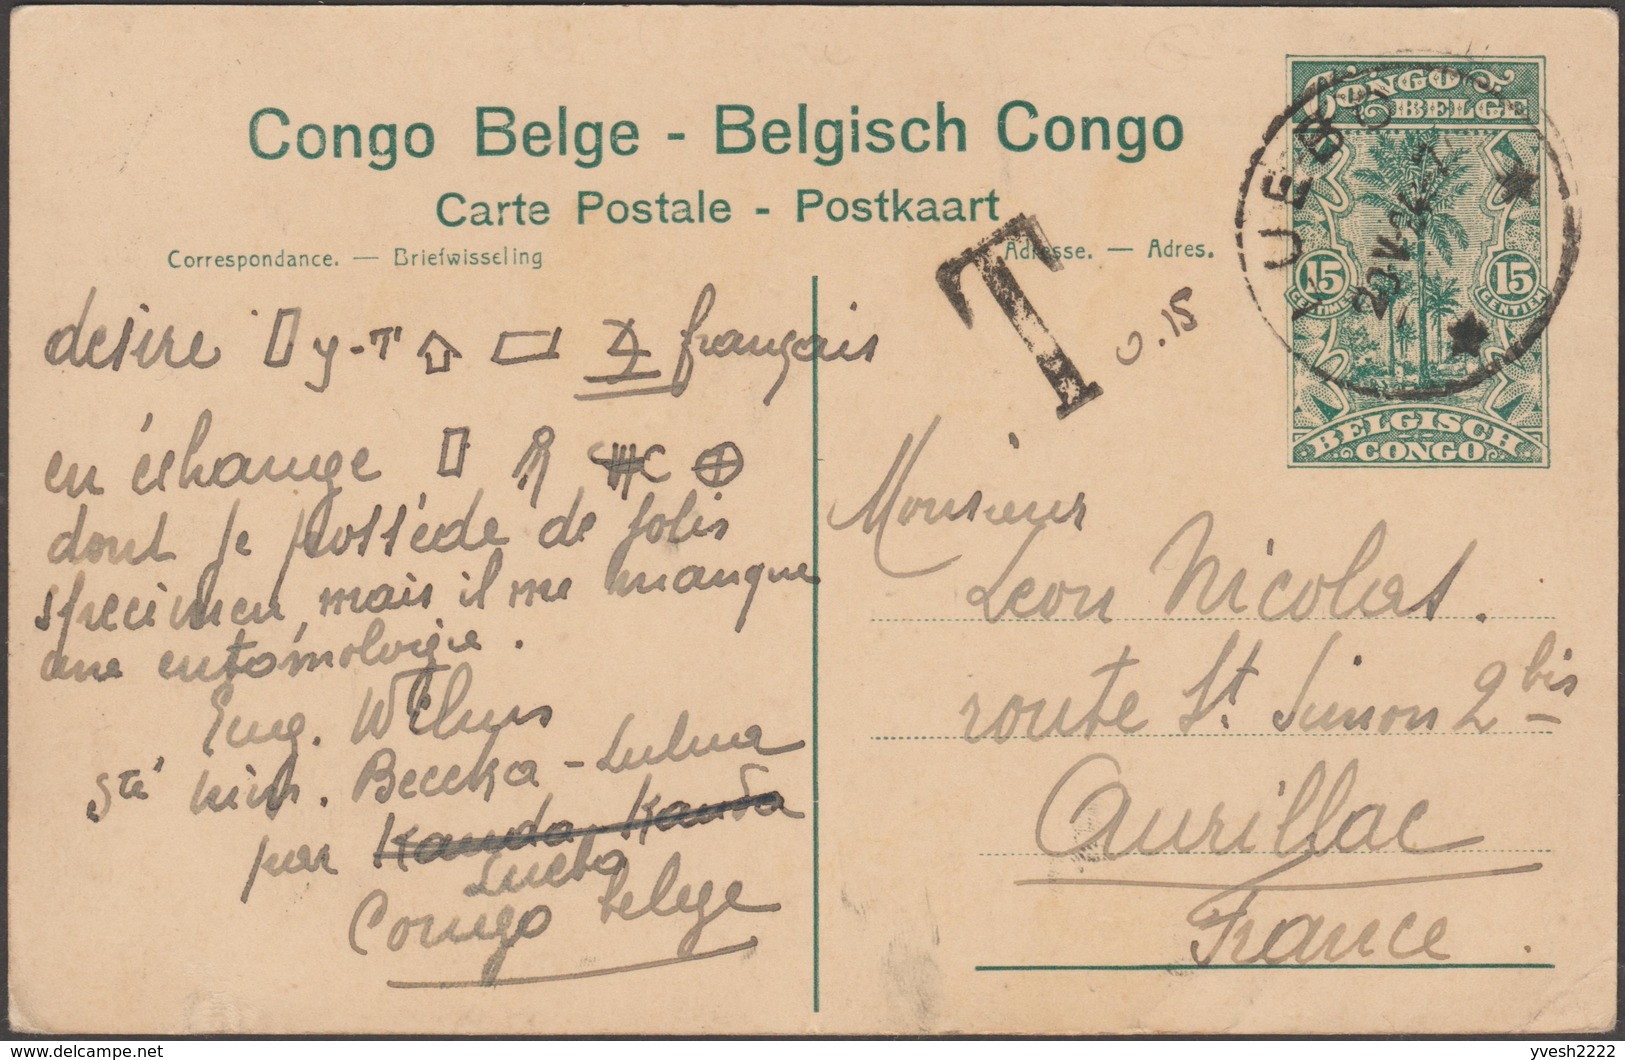 Congo Belge - Belgisch Congo
Carte Postale - Postkaart
Correspondance. — Briefwisseling
Adresse. — Adres.
CONGO BELGE
15 CENTIMES
15 CENTIEM
BELGISCH CONGO
LUEBO
T
0.15
desire y-T français
en échange
dont je possède de jolis
specimen, mais il me manque
une entomologie.
Eug. Wilms
Sté Min. Beceka - Lulua
par Kanda Kanda
Luebo
Congo belege
Monsieur
Leon Nicolas.
route St. Simon 2 bis
Aurillac
France.
yvesh2222